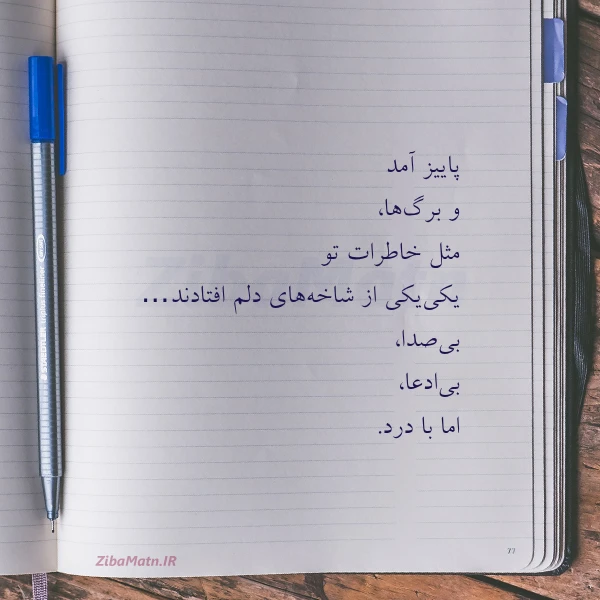 پاییز آمد
و برگ‌ها،
مثل خاطرات تو
یکی‌یکی از شاخه‌های دلم افتادند...
بی‌صدا،
بی‌ادعا،
اما با درد.
ZibaMatn.IR